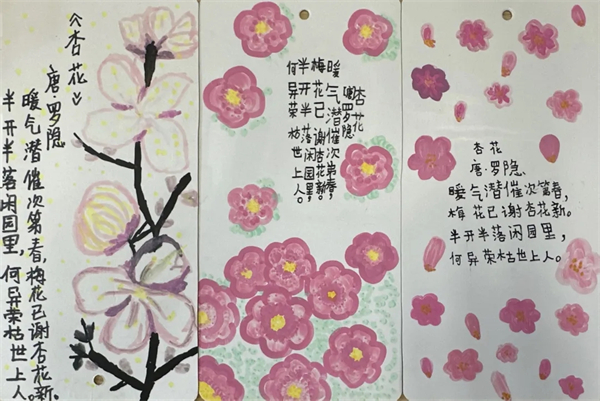 《杏花》
唐·罗隐
暖气潜催次第春,梅花已谢杏花新。
半开半落闲园里,何异荣枯世上人。
杏花
唐罗隐
暖气潜催次第春,
梅花已谢杏花新。
半开半落闲园里,
何异荣枯世上人。
杏花
唐·罗隐
暖气潜催次第春,
梅花已谢杏花新。
半开半落闲园里,
何异荣枯世上人。